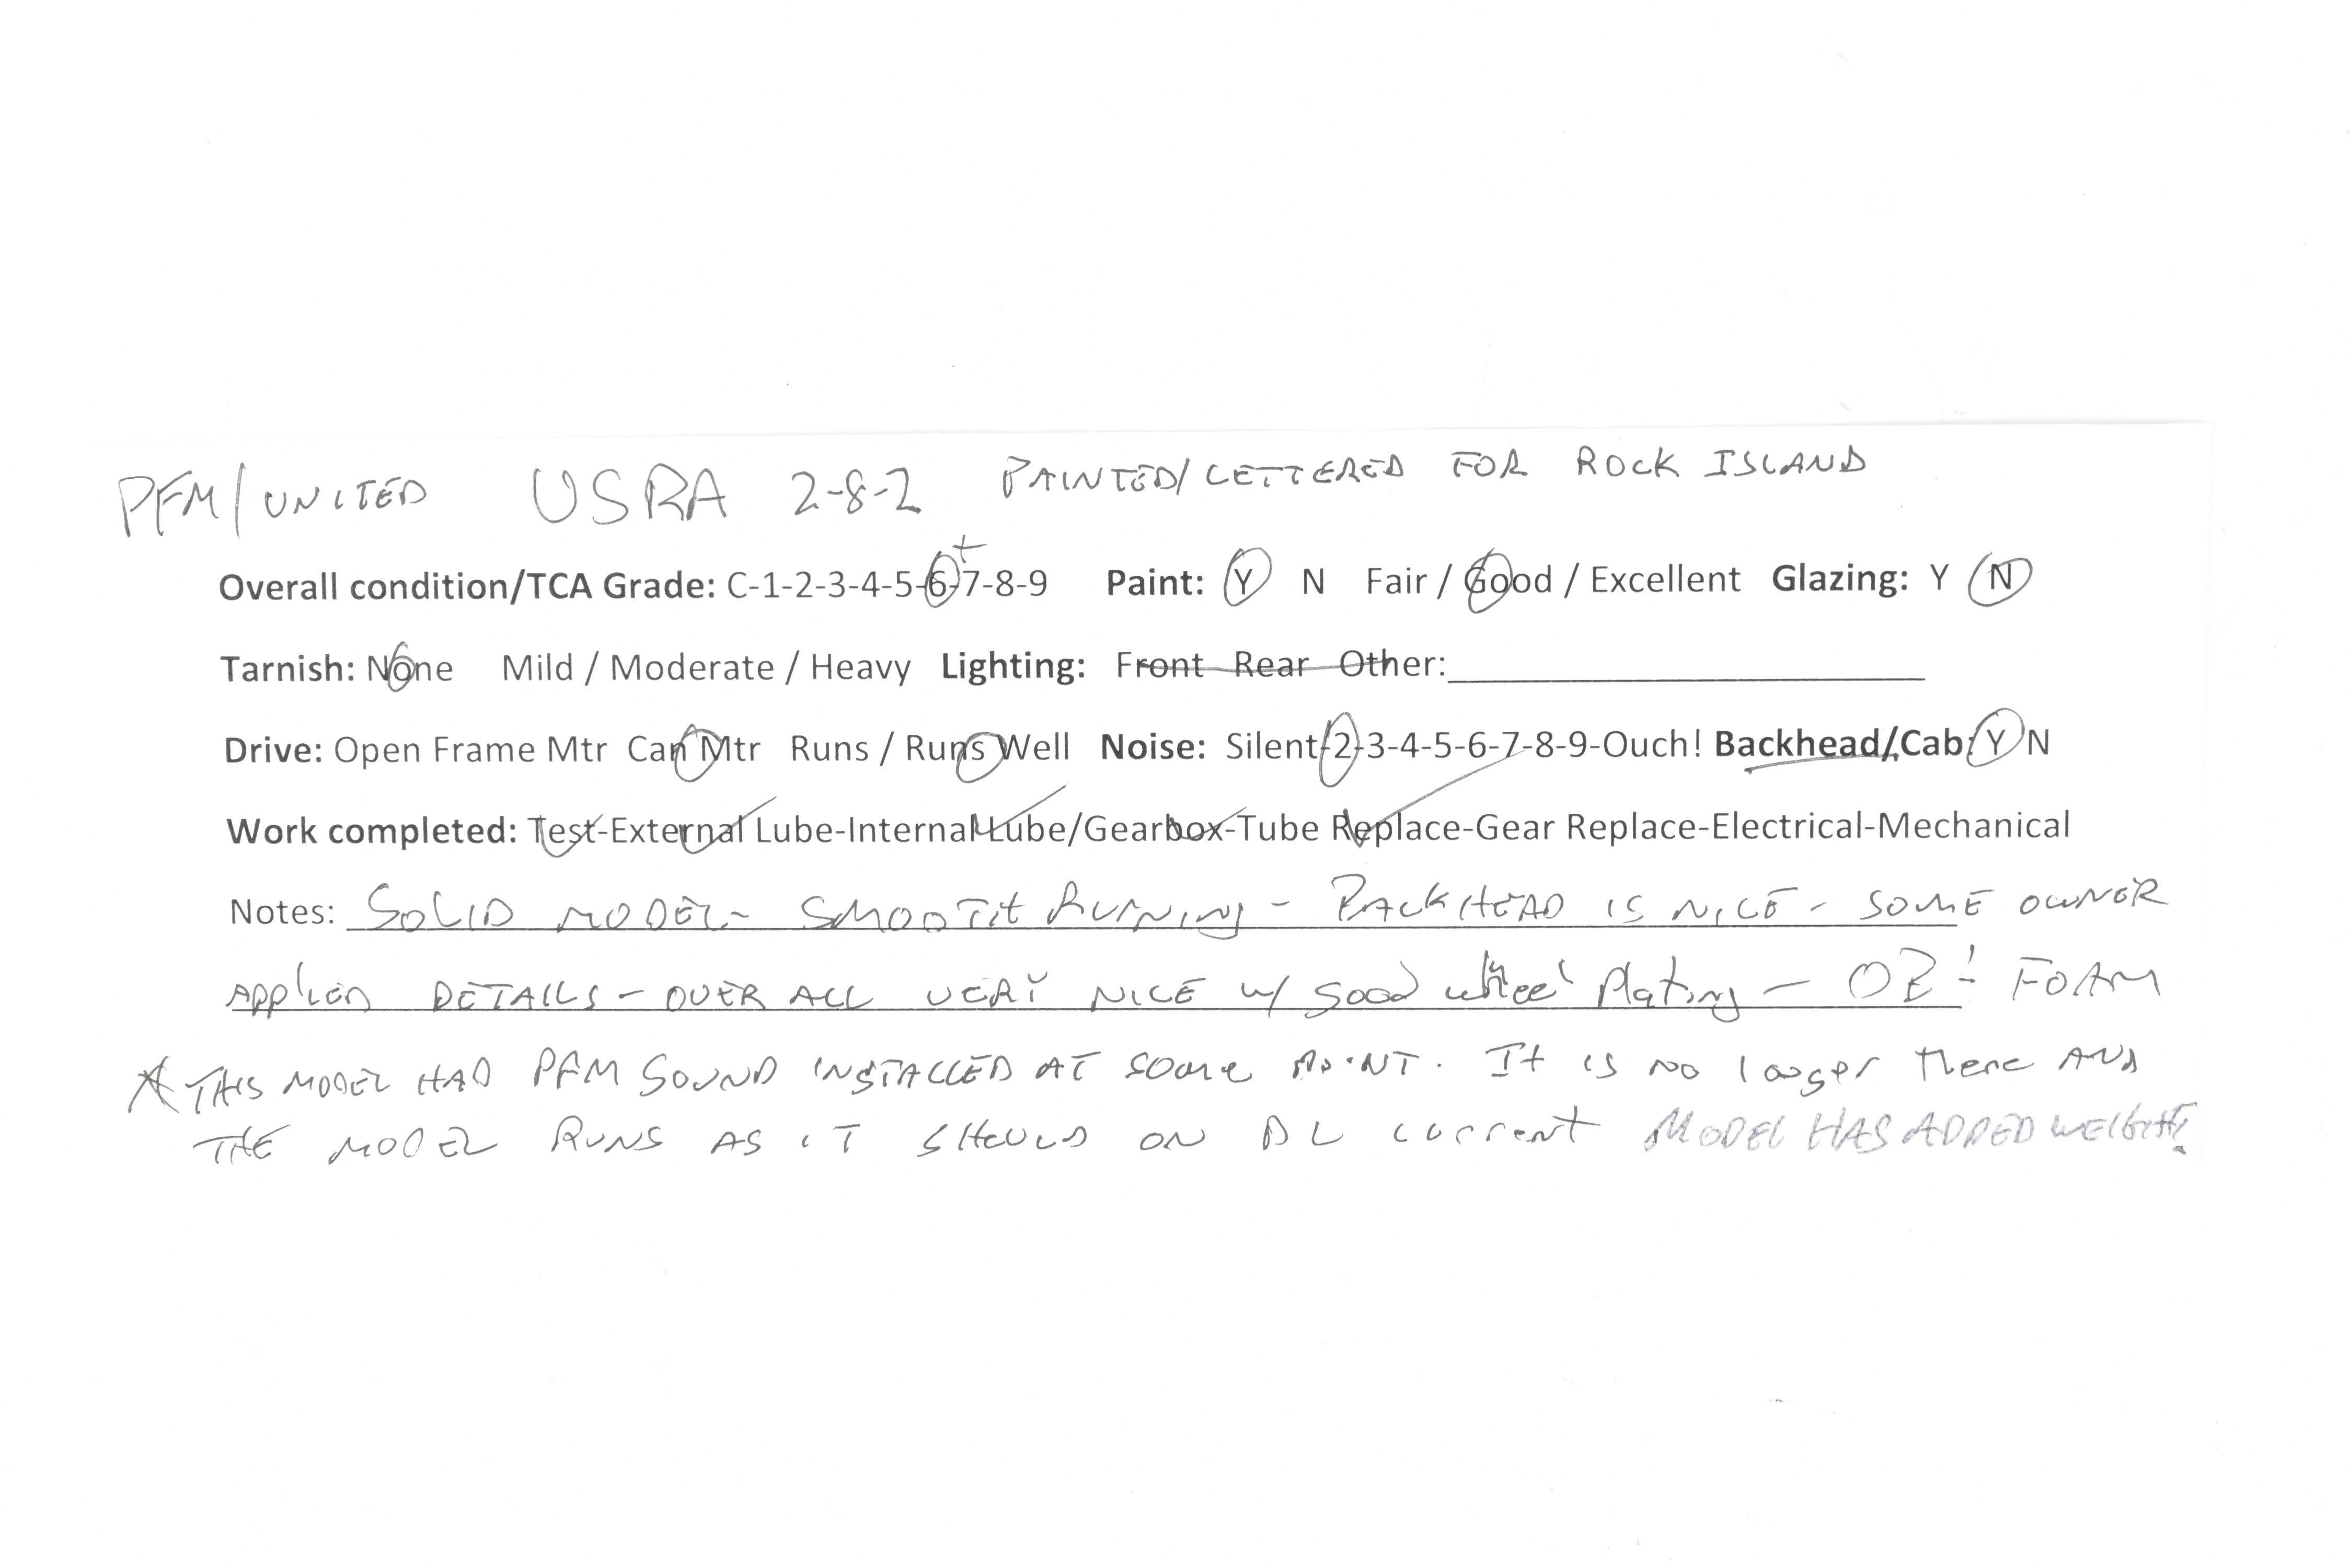 PFM/UNITED USRA 2-8-2 PAINTED/LETTERED FOR ROCK ISLAND
Overall condition/TCA Grade: C-1-2-3-4-5-6-7-8-9 + Paint: Y N Fair / Good / Excellent Glazing: Y N
Tarnish: None Mild / Moderate / Heavy Lighting: Front Rear Other:
Drive: Open Frame Mtr Can Mtr Runs / Runs Well Noise: Silent-2-3-4-5-6-7-8-9-Ouch! Backhead/Cab: Y N
Work completed: Test-External Lube-Internal Lube/Gearbox-Tube Replace-Gear Replace-Electrical-Mechanical
Notes: SOLID MODEL - SMOOTH RUNNING - BACKHEAD IS NICE - SOME OWNER
APPLIED DETAILS - OVER ALL VERY NICE W/ good wheel plating - OB: FOAM
THIS MODEL HAD PFM SOUND INSTALLED AT SOME POINT. It is no longer there AND
THE MODEL RUNS AS IT SHOULD ON current MODEL HAS ADDED WEIGHT!